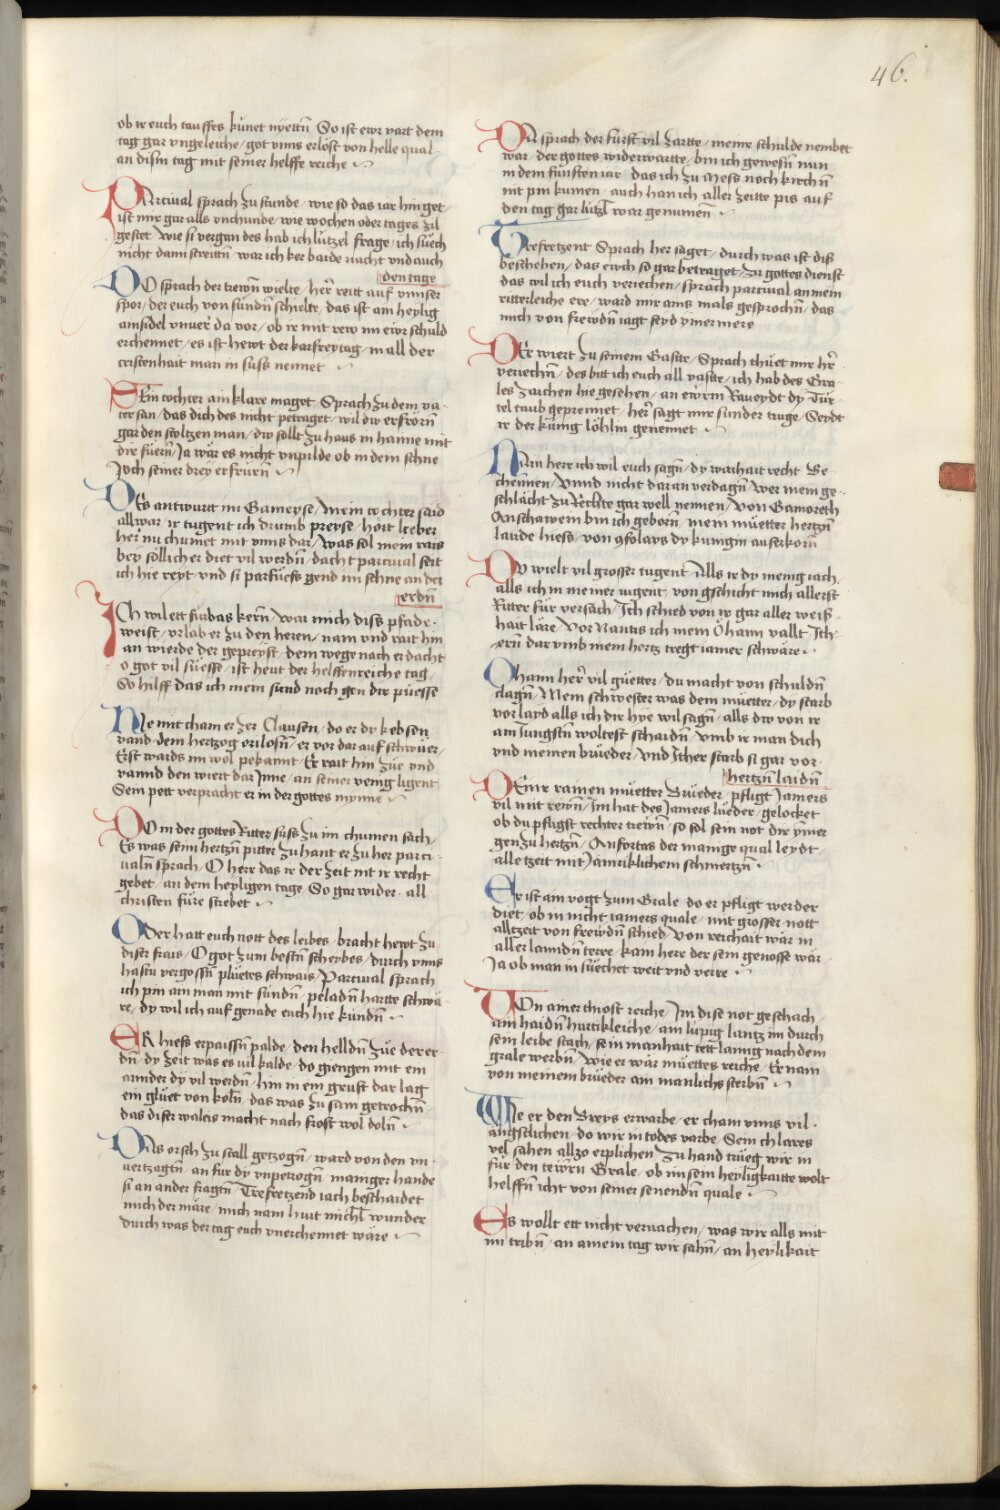 46.
ob ir euch tauffes kunet nyettn̄ So ist ewr vart dem
tag gar vngeleiche / got vnns erlost von helle qual
an dism̄ tag mit seiner helffe reiche
PArcival sprach zu stunde / wie so das iar hin get
ist mir gar alls vnchunde / wie wochen oder tages zil
gestet wie si vergan des hab ich lützel frage / ich süech
nicht dann streittn̄ war ich ker baide nacht vnd auch
den tage
DO sprach der trewn̄ wielte / her reitt auf vnnser
spor / der euch von sündn̄ schielte / das ist am heylig
ainsidel vnver da vor / ob ir mit rew im ewr schuld
erchennet / es ist hewt der karfreytag / in all der
cristenhait man in süss nennet
SEin tochter ain klare maget Sprach zu dem va
ter san / das dich des nicht petraget / wil dw erfrorn̄
gar den stoltzen man / dw sollt zu haus in hanne mit
dir füern̄ Ja wär es nicht vnpilde ob in dem schne
Joch seiner drey erfrürn̄
DEs antwurt im Gameyse / Mein tochter said
allwar / ir tugent ich drumb preyse / hört lieber
her nu chumet mit vnns dar / was sol mein rais
bey söllicher diet vil werdn̄ / dacht parcival seit
ich hie reyt / vnd si parfüess gend im schne an der
erdn̄
ICh wil ett fürbas kern̄ / war mich diss pfade
weist / vrlab er zu den heren / nam vnd rait hin
an wierde der gepreyst / dem wege nach er dacht
o got vil süesse / ist heut der helffenreiche tag
So hilff das ich mein sünd noch gen dir püesse
NIe mit cham er zer Clausen / do er dy kebsen
vand / dem hertzog erlosn̄ / er vor dar auf schwuer
Erst wards im wol pekannt / Er rait hin züe vnd
vannd den wiert dar Inne / an seiner venig ligent
Sein pett verpracht er in der gottes mynne
DO in der gottes Ritter süss zu im chumen sach
Es was seim hertzn̄ pitter zu hant er zu her parci
valn̄ sprach / O herr das ir der zeit nit ir recht
gebet / an dem heyligen tage / So gar wider all
christen füre strebet
ODer hatt euch nott des leibes bracht hewt zu
diser frais / O got zum bestn̄ scheybes / durch vnns
hastu vergossn̄ pluetes schwais / Parcival sprach
ich pin ain man mit sündn̄ peladn̄ hartte schwä
re / dy wil ich auf genade euch hie kündn̄
ER hiess erpaissn̄ palde / den helldn̄ züe der er
dn̄ / dy zeit was es vil kalde / do giengen mit ein
annder dy vil werdn̄ / hin in ein gruft dar lag
ein gluet von koln̄ / das was zu sam getrochn̄
das diser waleis macht nach frost wol doln̄
DAs orsch zu stall getzogn̄ / ward von den vn
vertzagtn̄ / an fur dy vnpetrogn̄ / maniger hande
si an ander fragtn̄ Trefretzend iach beschaidet
mich der märe / mich nam hiut michl wunder
durch was der tag euch vnerchennet wäre
DA sprach der fürst vil zartte / meine schulde nembet
war / der gottes widerwartte / bin ich gewesn̄ nun
in dem fünften iar / das ich zu Mess noch kirchn̄
nit pin kumen / auch han ich aller zeitte pis auf
den tag gar lützl war genumen̄
TRefretzent Sprach her saget / durch was ist diss
beschehen / das ewch so gar betraget / zu gottes dienst
das wil ich euch veriechen / sprach parcival an mein
ritterleiche ere / ward mir ains mals gesprochn̄ / das
mich von frewdn̄ iagt seyd ymermere
DEr wiert zu seinem Gastte / Sprach thuet mir hr̄
veriechn̄ / des bitt ich euch all vastte / ich hab des Gra
les zaichen hie gesehen / an ewrm Raveydt dy Tür
tel taub geprennet / her sagt mir sunder truge / Seydt
ir der künig löhlin genennet
NAin herr ich wil euch sagn̄ / dy warhait recht Be
chennen / vnnd nicht daran verdagn̄ wer mein ge
schlächt zu Rechte gar well nennen / von Gamoreth
Anschawem bin ich geborn̄ / mein müetter hertzn̄
laude hiess / von 9folays dy künigin auserkorn̄
DV wielt vil grosser tugent Alls ir dy menig iach
alls ich in meiner iugent / von gschicht mich allerst
Ritter für versach / Ich schied von ir gar aller weiss
hait läre / Vor Nantis ich mein Öhaim vallt Ich
ern̄ dar vmb mein hertz tregt iamer schwäre
OHaim her̄ vil güetter / du macht von schuldn̄
clagn̄ / Mein schwester was dem müetter / dy starb
vor layd alls ich dir hye wil sagn̄ / alls dw von ir
am Jungstn̄ woltest schaidn̄ / vmb ir man dich
vnd meinen brüeder / vnd Icher starb si gar vor
hertzn̄ laidn̄
DEine rainen müetter Brüeder / pfligt Jamers
vil mit rewn̄ / Im hat des Jamers lüeder / gelocket
ob du pfligst rechter trewn̄ / so sol sein not dir ymer
gen zu hertzn̄ / Anfortas der mainge qual leydt
alle tzeit mit Jämriklichem schmertzn̄
ER ist ain vogt zum Grale / do er pfligt werder
diet / ob in nicht iamers quale / mit grosser nott
alltzeit von frewdn̄ schied / Von reichait wär in
aller lanndn̄ terre / kain herr der sein genosse wär
Ja ob man in süechet weit vnd verre
VOn ainer thiost reiche / Im dise not geschach
ain haidn̄ hurtikleiche / ain lüpig lantz im durch
sein leibe stach / sein manhait tett lannig nach dem
grale werbn̄ / wie er wär müettes reiche / Er nam
von meinem brüeder ain manlichs sterbn̄
WIe er den Breys erwarbe / er cham vnns vil
angstlichen / do wir in todes varbe Sein chlares
vel sahen allzo erplichen / Zu hand trüeg wir in
für den tewrn̄ Grale / ob im sein heyligkaitte wolt
helffn̄ icht von seiner senendn̄ quale
ES wollt ett nicht vervachen / was wir alls mit
im tribn̄ / an ainem tag wir sahn̄ / an heylikait